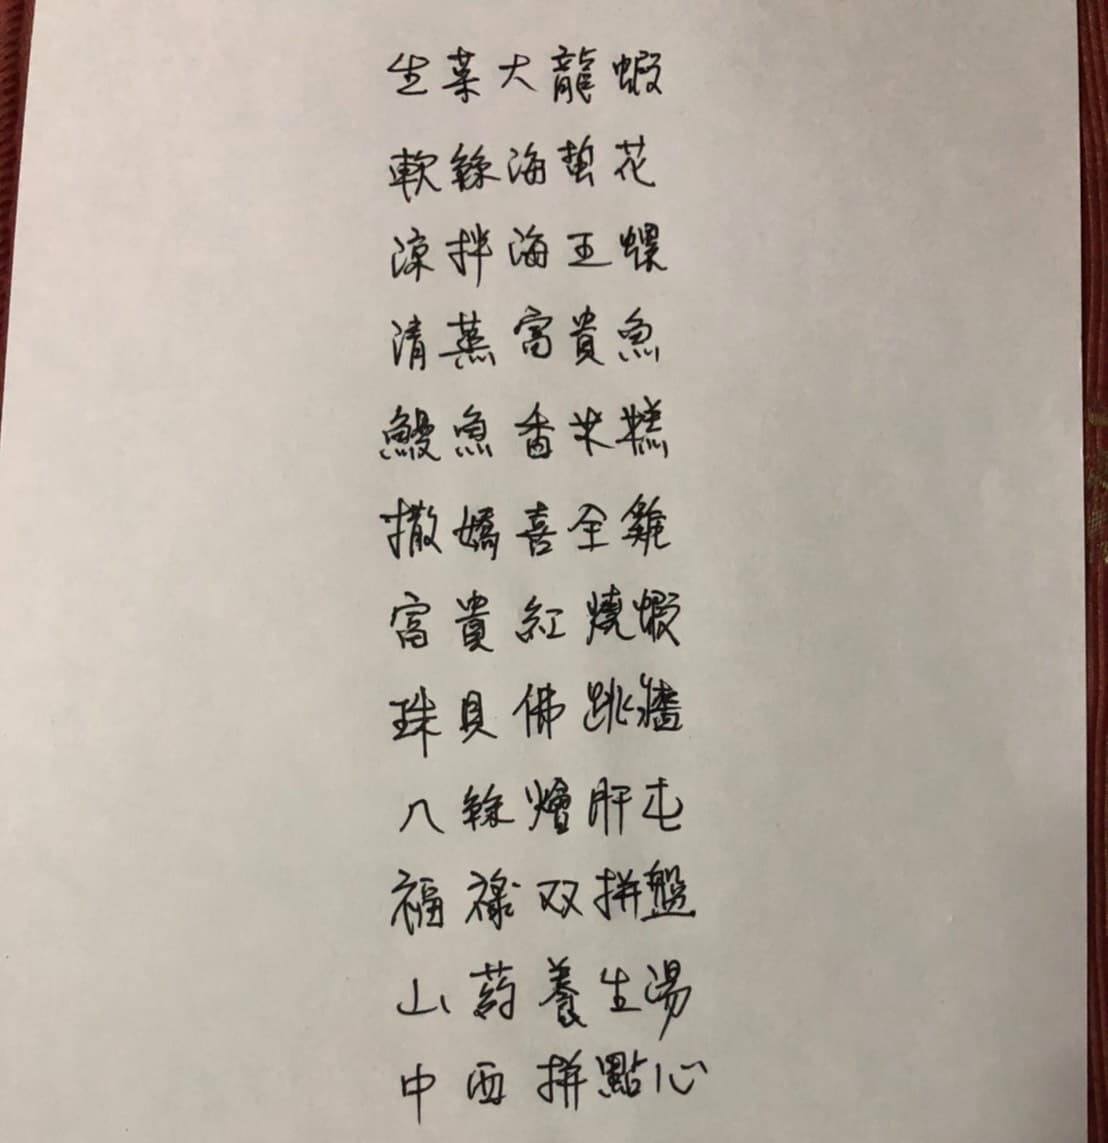 生菜大龍蝦
軟絲海蜇花
涼拌海王螺
清蒸富貴魚
鰻魚香米糕
撒嬌喜全雞
富貴紅燒蝦
珠貝佛跳牆
八絲燴肝屯
福祿双拼盤
山葯養生湯
中西拼點心